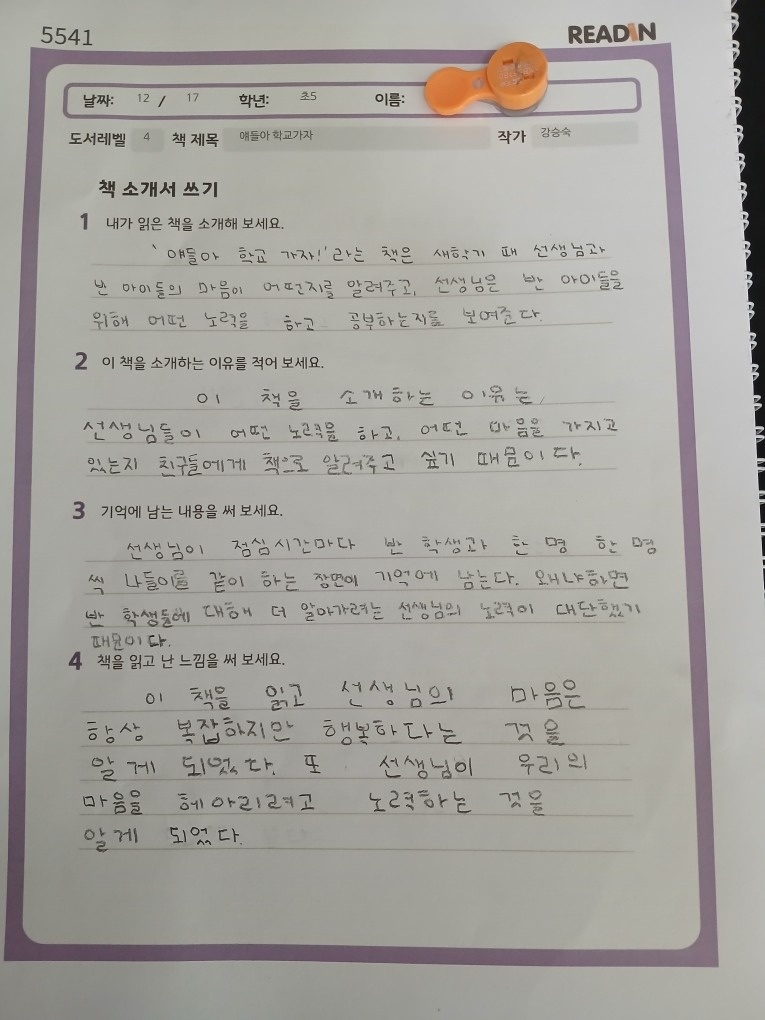 5541
READIN
날짜: 12 / 17 학년: 초5 이름:
도서레벨 4 책 제목 얘들아 학교가자 작가 강승숙
책 소개서 쓰기
1 내가 읽은 책을 소개해 보세요.
'얘들아 학교 가자!'라는 책은 새학기 때 선생님과
반 아이들의 마음이 어떤지를 알려주고, 선생님은 반 아이들을
위해 어떤 노력을 하고 공부하는지를 보여준다.
2 이 책을 소개하는 이유를 적어 보세요.
이 책을 소개하는 이유는,
선생님들이 어떤 노력을 하고, 어떤 마음을 가지고
있는지 친구들에게 책으로 알려주고 싶기 때문이다.
3 기억에 남는 내용을 써 보세요.
선생님이 점심시간마다 반 학생과 한 명 한 명
씩 나들이를 같이 하는 장면이 기억에 남는다. 왜냐하면
반 학생들에 대해 더 알아가려는 선생님의 노력이 대단했기
때문이다.
4 책을 읽고 난 느낌을 써 보세요.
이 책을 읽고 선생님의 마음은
항상 복잡하지만 행복하다는 것을
알게 되었다. 또 선생님이 우리의
마음을 헤아리려고 노력하는 것을
알게 되었다.